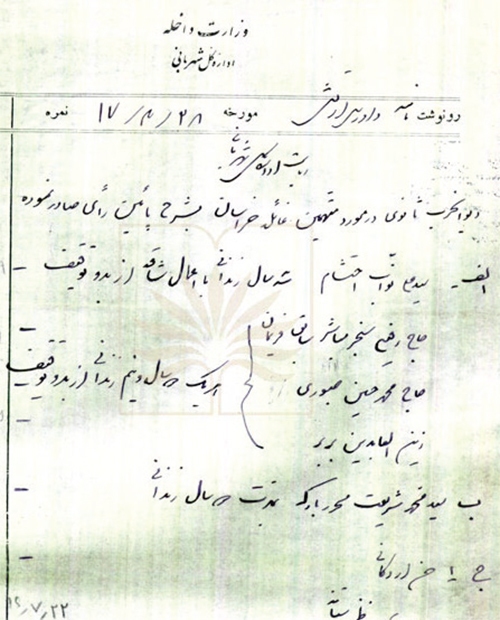 وزارت داخله
اداره کل شهربانی
رونوشت نامه دادرسی ارتش مورخه ۱۷/۸/۲۸ نمره
ریاست اداره کل شهربانی
دیوانحرب ثانوی در مورد متهمین غائله خراسان بشرح پائین رأی صادر نموده
الف - سید علی نواب احتشام سه سال زندانی با اعمال شاقه از بدو توقیف -
حاج رفیع سنجر مباشر سابق فریمان
حاج محمد حسین صبوری هر یک دو سال و نیم زندانی از بدو توقیف
زین العابدین بربر
ب سید محمد شریعت بمدت دو سال زندانی
ج ۱
۱۶/۷/۲۲